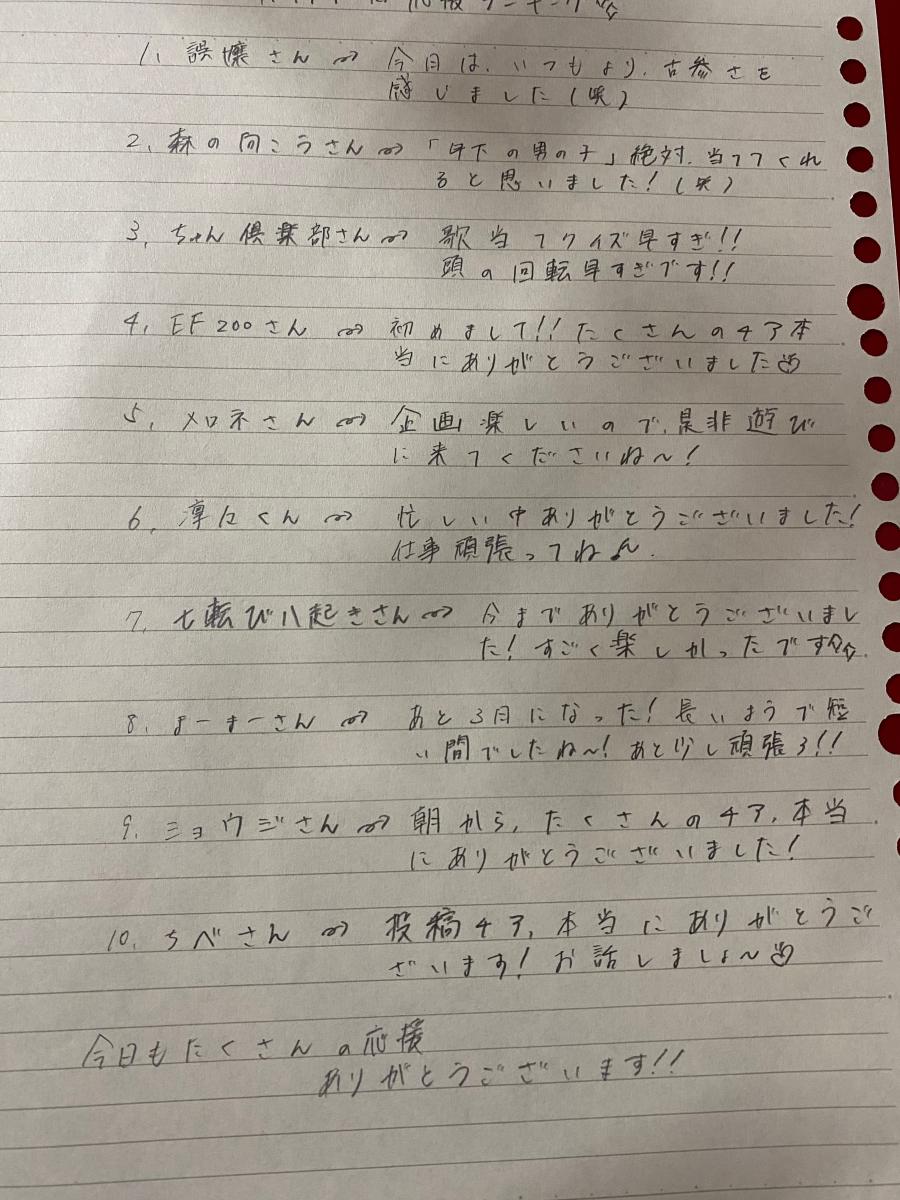 応援ランキング
1. 誤嬢さん ⇝ 今日は、いつもより、古参さを
感じました(咲)
2. 森の向こうさん ⇝ 「年下の男の子」絶対、当ててくれ
ると思いました!(咲)
3. ちゃん倶楽部さん ⇝ 歌当てクイズ早すぎ!!
頭の回転早すぎです!!
4. EF200さん ⇝ 初めまして!!たくさんのチア本
当にありがとうございました
5. メロネさん ⇝ 企画楽しいので、是非遊び
に来てくださいね〜!
6. 淳々くん ⇝ 忙しい中ありがとうございました!
仕事頑張ってねん.
7. 七転び八起きさん ⇝ 今までありがとうございまし
た!すごく楽しかったです
8. まーまーさん ⇝ あと3日になった!長いようで短
い間でしたね〜!あと少し頑張る!!
9. ショウジさん ⇝ 朝から、たくさんのチア、本当
にありがとうございました!
10. ちべさん ⇝ 投稿チア、本当にありがとうご
ざいます!お話しましょ〜
今日もたくさんの応援
ありがとうございます!!